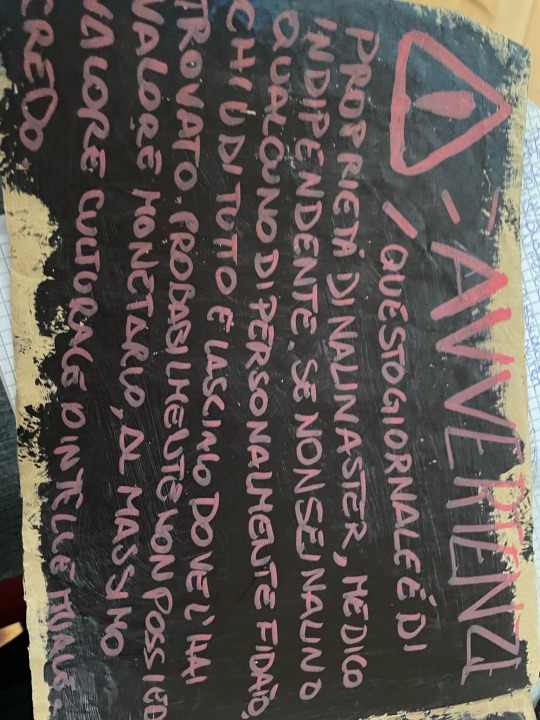 ! - AVVERTENZ
QUESTO GIORNALE È DI
PROPRIETÀ DI NAUNASTER, MEDICO
INDIPENDENTE. SE NON SEI NAUN O
QUALCUNO DI PERSONALMENTE FIDATO,
CHIUDI TUTTO E LASCIALO DOVE L'HAI
TROVATO. PROBABILMENTE NON POSSIED
VALORE MONETARIO, AL MASSIMO
VALORE CULTURALE O INTELLE
CREDO.